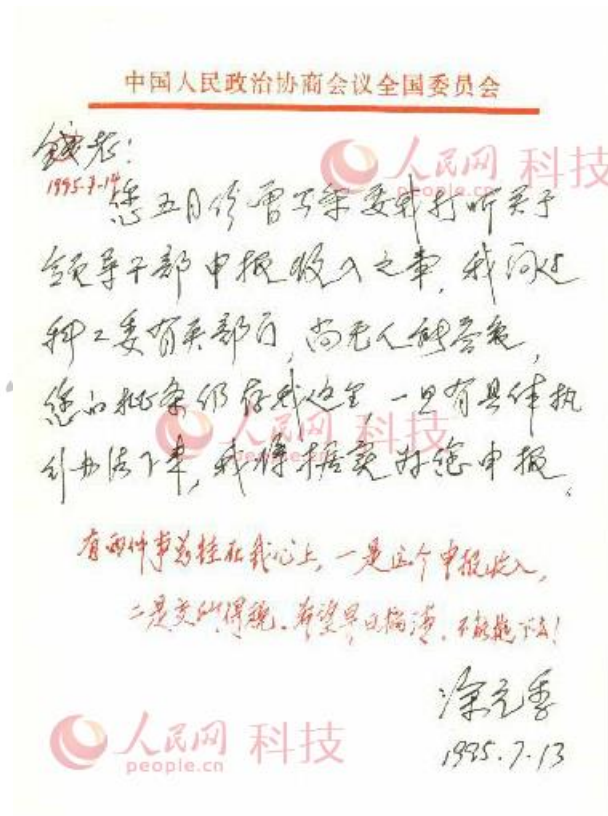 中国人民政治协商会议全国委员会
钱老:
1995.7.14
您五月份曾写条要我打听关于
领导干部申报收入之事,我问过
科工委有关部门,尚无人能答复,
您的批条仍存我这里,一旦有具体执
行办法下来,我将据实为您申报。
有两件事总挂在我心上,一是这个申报收入,
二是交纳所得税。希望早日搞清,不能拖下去!
涂元季
1995.7.13
人民网 科技
people.cn
人民网 科技
人民网 科技
people.cn